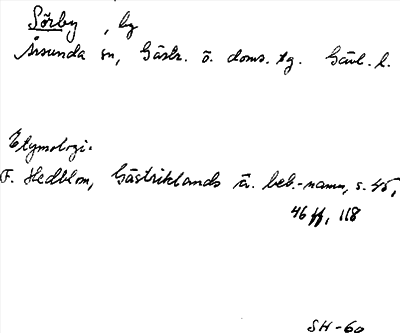 Sörby, by
Årsunda sn, Gästr. ö. doms. tg. Gävl. l.
Etymologi.
F. Hedblom, Gästriklands ä. beb.-namn, s. 45,
46 ff, 118
SH-60